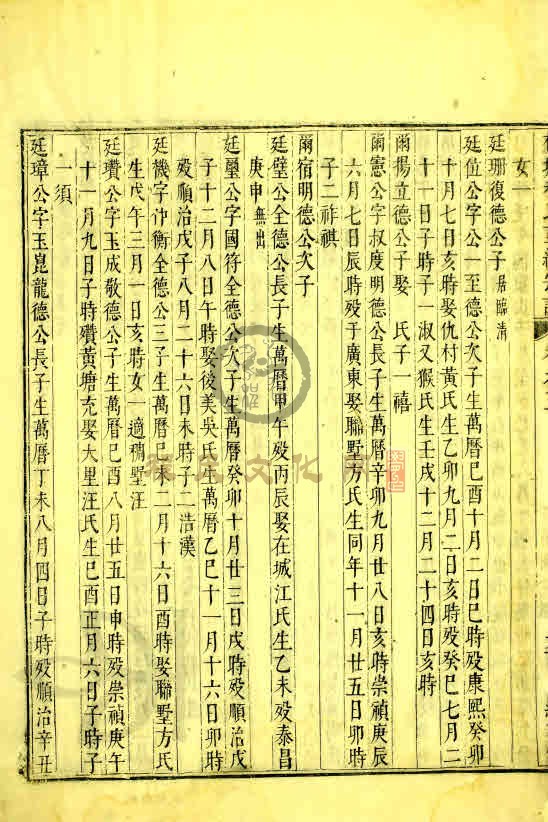 女一
廷珊復德公子居臨清
廷位公字公一至德公次子生萬曆己酉十月二日巳時殁康熙癸卯
十月十七亥時娶仇村黃氏生乙卯九月二日亥時殁癸巳七月二
十一日子時子一淑又猴氏生壬戌十二月二十四日亥時
爾揚立德公子娶 氏子一禧
爾憲公字叔度明德公長子生萬曆辛卯九月廿八日亥時崇禎庚辰
六月七日辰時殁于廣東娶聯墅方氏生同年十一月廿五日卯時
子二祚祺
爾宿明德公次子
廷璧公全德公長子生萬曆甲午殁丙辰娶在城江氏生乙未殁泰昌
庚申無出
廷璽公字國符全德公次子生萬曆癸卯十月廿三日戌時殁順治戊
子十二月八日午時娶後美吳氏生萬曆乙巳十一月十六日卯時
殁順治戊子八月二十六日未時子二浩漢
廷機字冲衡全德公三子生萬曆己未二月十六日酉時娶聯墅方氏
生戊午三月一日亥時女一適稠墅汪
廷瓚公字玉成敬德公子生萬曆己酉八月廿五日申時殁崇禎庚午
十一月九日子時殯黃塘充娶大里汪氏生己酉正月六日子時子
一須
廷璋公字玉崑龍德公長子生萬曆丁未八月四日子時殁順治辛丑